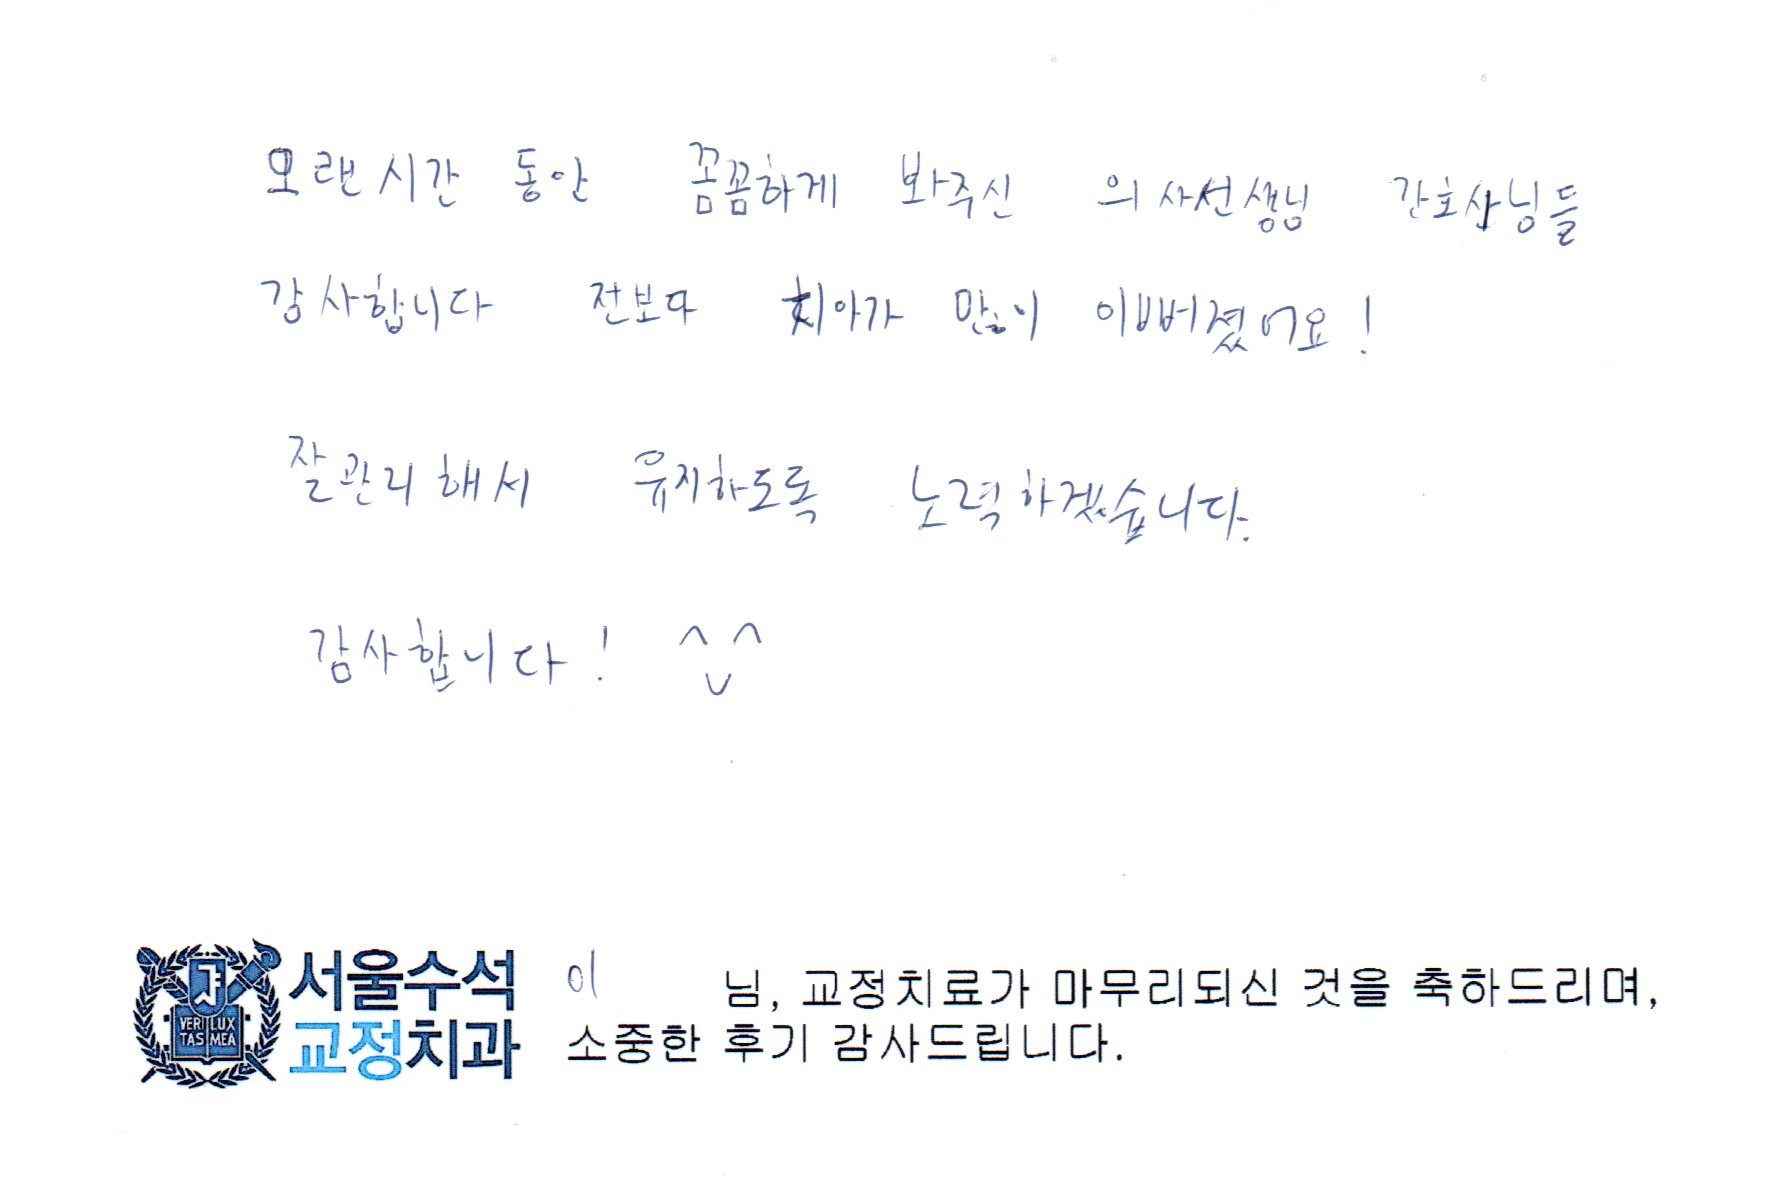 오랜시간 동안 꼼꼼하게 봐주신 의사선생님 간호사님들
감사합니다 전보다 치아가 많이 이뻐졌어요!
잘관리해서 유지하도록 노력하겠습니다.
감사합니다! ^ ^
서울수석
교정치과
VERI LUX
TAS MEA
이 님, 교정치료가 마무리되신 것을 축하드리며,
소중한 후기 감사드립니다.